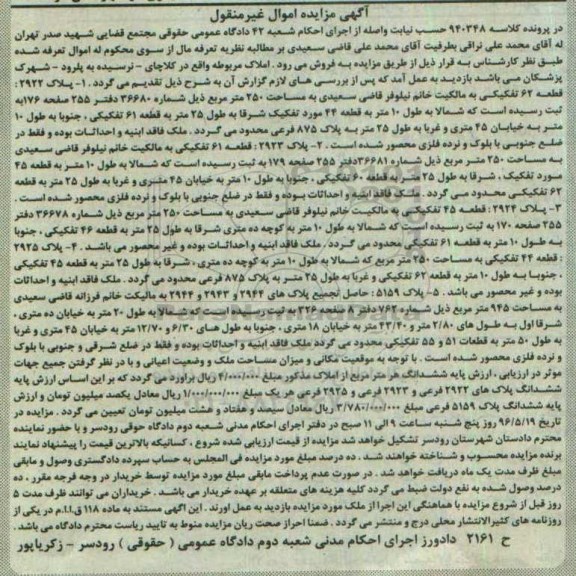 آگهی مزایده اموال غیرمنقول
در پرونده کلاسه ۹۴۰۳۴۸ حسب نیابت واصله از اجرای احکام شعبه ۴۲ دادگاه عمومی حقوقی مجتمع قضایی شهید صدر تهران
له آقای محمد علی نراقی بطرفیت آقای محمد علی قاضی سعیدی بر مطالبه نظریه تعرفه مال از سوی محکوم له اموال تعرفه شده
طبق نظر کارشناس به قرار ذیل از طریق مزایده به فروش می رود . املاک مربوطه واقع در کلاچای – نرسیده به پلرود – شهرک
پزشکان می باشد بازدید به عمل آمد که پس از بررسی های لازم گزارش آن به شرح ذیل تقدیم می گردد . ۱- پلاک ۲۹۲۲ :
قطعه ۶۲ تفکیکی به مالکیت خانم نیلوفر قاضی سعیدی به مساحت ۲۵۰ متر مربع ذیل شماره ۳۶۶۸۰ دفتر ۲۵۵ صفحه ۱۷۶به
ثبت رسیده است که شمالا به طول ۱۰ متر به قطعه ۴۴ مورد تفکیک شرقا به طول ۲۵ متر به قطعه ۶۱ تفکیکی ، جنوبا به طول ۱۰
متر به خیابان ۴۵ متری و غربا به طول ۲۵ متر به پلاک ۸۷۵ فرعی محدود می گردد . ملک فاقد ابنیه و احداثات بوده و فقط در
ضلع جنوبی با بلوک و نرده فلزی محصور شده است . ۲- پلاک ۲۹۲۳ : قطعه ۶۱ تفکیکی به مالکیت خانم نیلوفر قاضی سعیدی
به مساحت ۲۵۰ متر مربع ذیل شماره ۳۶۶۸۱دفتر ۲۵۵ صفحه ۱۷۹ به ثبت رسیده است که شمالا به طول ۱۰ متر به قطعه ۴۵
مورد تفکیک ، شرقا به طول ۲۵ متر به قطعه ۶۰ تفکیکی ، جنوبا به طول ۱۰ متر به خیابان ۴۵ متری و غربا به طول ۲۵ متر به قطعه
۶۲ تفکیکی محدود می گردد . ملک فاقد ابنیه و احداثات بوده و فقط در ضلع جنوبی با بلوک و نرده فلزی محصور شده است .
۳- پلاک ۲۹۲۴ : قطعه ۴۵ تفکیکی به مالکیت خانم نیلوفر قاضی سعیدی به مساحت ۲۵۰ متر مربع ذیل شماره ۳۶۶۷۸ دفتر
۲۵۵ صفحه ۱۷۰ به ثبت رسیده است که شمالا به طول ۱۰ متر به کوچه ده متری شرقا به طول ۲۵ متر به قطعه ۴۶ تفکیکی ، جنوبا
به طول ۱۰ متر به قطعه ۶۱ تفکیکی محدود می گردد . ملک فاقد ابنیه و احداثات بوده و غیر محصور می باشد . ۴- پلاک ۲۹۲۵
: قطعه ۴۴ تفکیکی به مساحت ۲۵۰ متر مربع که شمالا به طول ۱۰ متر به کوچه ده متری ، شرقا به طول ۲۵ متر به قطعه ۴۵ تفکیکی
، جنوبا به طول ۱۰ متر به قطعه ۶۲ تفکیکی و غربا به طول ۲۵ متر به پلاک ۸۷۵ فرعی محدود می گردد . ملک فاقد ابنیه و احداثات
بوده و غیر محصور می باشد . ۵- پلاک ۵۱۵۹ : حاصل تجمیع پلاک های ۲۹۴۴ و ۲۹۴۳ و ۲۹۴۴ به مالکیت خانم فرزانه قاضی سعیدی
به مساحت ۹۴۵ متر مربع ذیل شماره ۷۶۲ دفتر ۸ صفحه ۲۲۶ به ثبت رسیده است که شمالا به طول ۲۰ متر به خیابان ده متری ،
شرقا اول به طول های ۲/۸۰ متر و ۴۳/۴۰ متر به خیابان ۱۸ متری ، جنوبا به طول های ۶/۳۰ و ۱۲/۷۰ متر به خیابان ۴۵ متری و غربا
به طول ۵۰ متر به قطعات ۵۱ و ۵۵ تفکیکی محدود می گردد ملک فاقد ابنیه و احداثات بوده و فقط در ضلع شرقی و جنوبی با بلوک
و نرده فلزی محصور شده است . با توجه به موقعیت مکانی و میزان مساحت ملک و وضعیت اعیانی و با در نظر گرفتن جمیع جهات
موثر در ارزیابی ، ارزش پایه ششدانگ هر متر مربع از املاک مذکور مبلغ ۴/۰۰۰/۰۰۰ ریال براورد می گردد که بر این اساس ارزش پایه
ششدانگ پلاک های ۲۹۲۲ فرعی و ۲۹۲۳ فرعی و ۲۹۲۵ فرعی هر یک مبلغ ۱/۰۰۰/۰۰۰/۰۰۰ ریال معادل یکصد میلیون تومان و ارزش
پایه ششدانگ پلاک ۵۱۵۹ فرعی مبلغ ۳/۷۸۰/۰۰۰/۰۰۰ ریال معادل سیصد و هفتاد و هشت میلیون تومان تعیین می گردد . مزایده در
تاریخ ۹۶/۵/۱۹ روز پنج شنبه ساعت ۹ الی ۱۱ صبح در دفتر اجرای احکام مدنی شعبه دوم دادگاه حوقی رودسر و با حضور نماینده
محترم دادستان شهرستان رودسر تشکیل خواهد شد مزایده از قیمت ارزیابی شده شروع ، کسانیکه بالاترین قیمت را پیشنهاد نمایند
برنده مزایده محسوب و شناخته خواهند شد . ده درصد مبلغ مورد مزایده فی المجلس به حساب سپرده دادگستری وصول و مابقی
مبلغ ظرف مدت یک ماه دریافت خواهد شد . در صورت عدم پرداخت مابقی مبلغ مورد مزایده توسط خریدار در وجه فرجه مقرر ، ده
درصد وصول شده به نفع دولت ضبط می گردد کلیه هزینه های متعلقه بر عهده خریدار می باشد . خریداران می توانند ظرف مدت ۵
روز قبل از شروع مزایده با هماهنگی این اجرا از ملک مورد مزایده بازدید به عمل اورند . این آگهی مستند به ماده ۱۱۸ ق.ا.ا.م در یکی از
روزنامه های کثیرالانتشار محلی درج و منتشر می گردد . ضمنا احراز صحت ریان مزایده منوط به تایید ریاست محترم دادگاه می باشد .
ح ۲۱۶۱ دادورز اجرای احکام مدنی شعبه دوم دادگاه عمومی ( حقوقی ) رودسر – زکریاپور